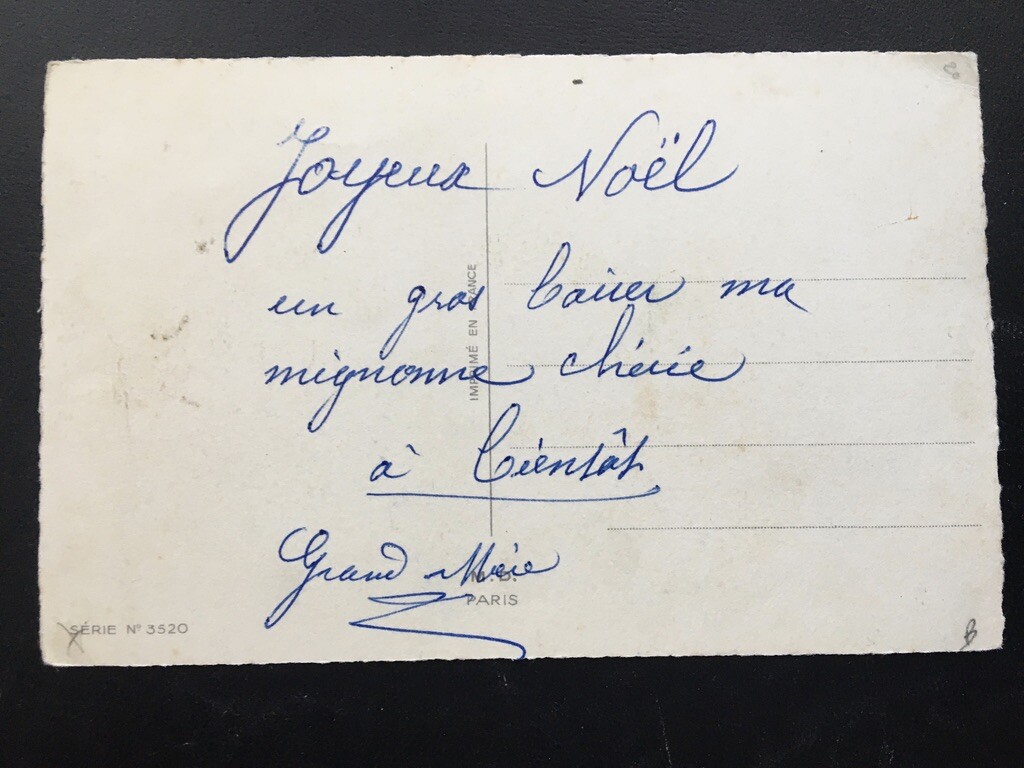 Joyeux Noël
un gros baiser ma
mignonne chérie
à bientôt
Grand Mère
IMPRIMÉ EN FRANCE
M. D.
PARIS
SÉRIE N° 3520
B